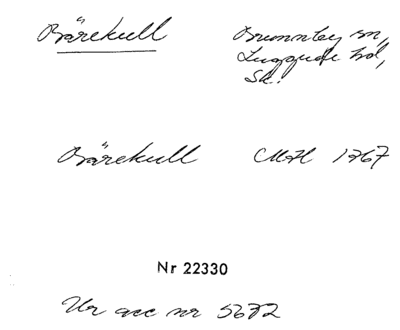 Bärekull Brunnby sn,
Luggude hd,
Sk.
Bärekull CMH 1767
Nr 22330
Ur acc nr 5672